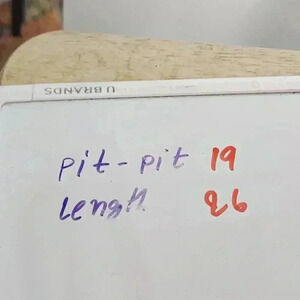 U BRANDS
pit-pit 19
Length 26